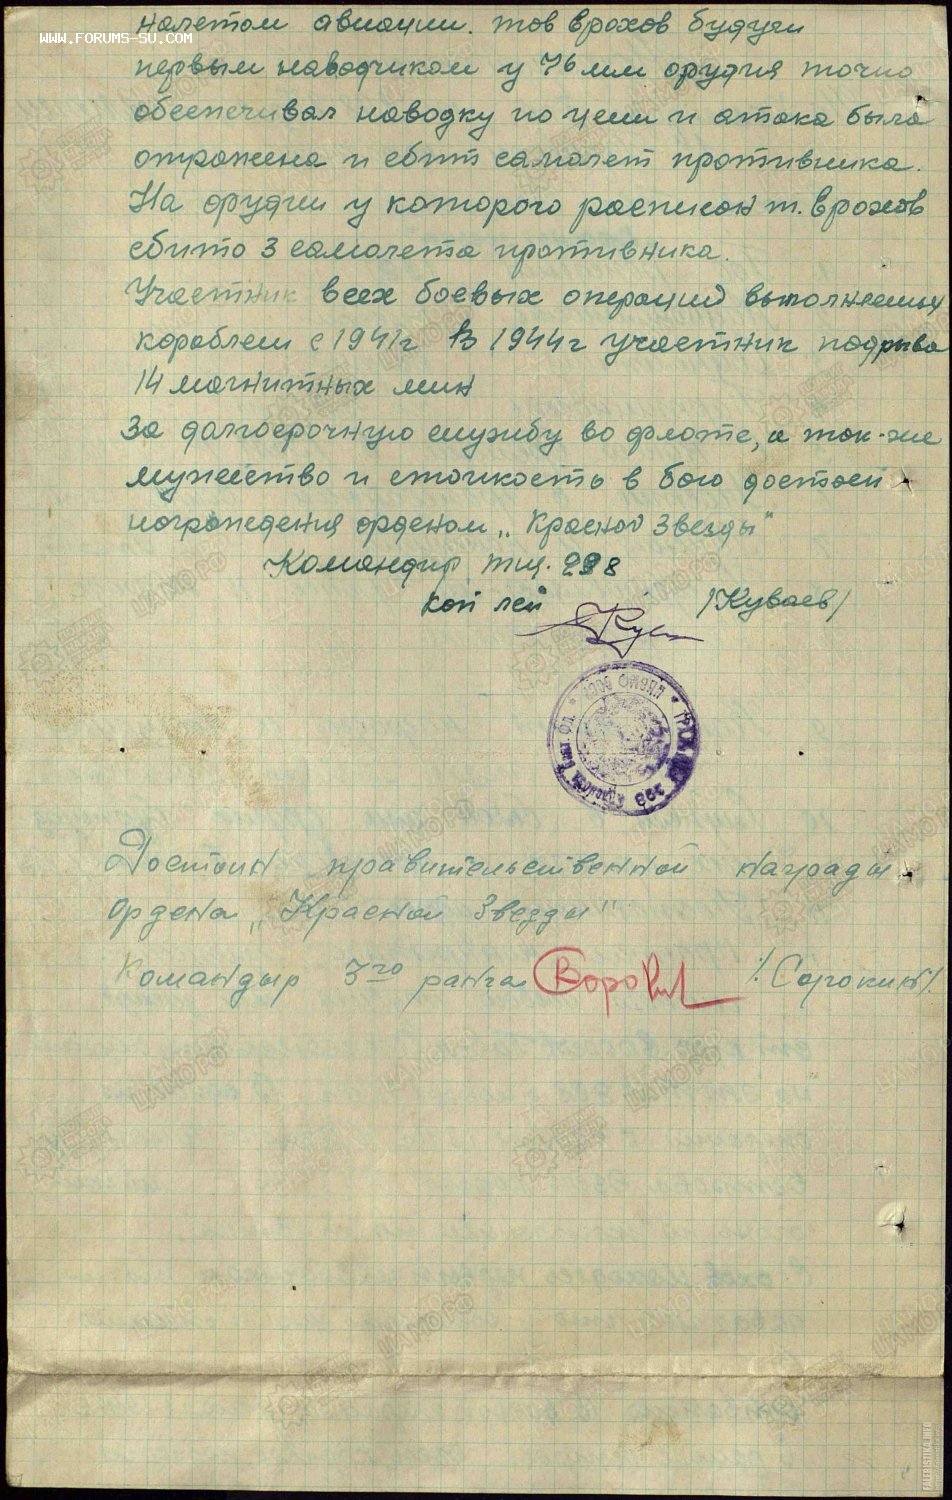 WWW.FORUMS-SU.COM
налетом авиации. тов Врохов будучи
первым наводчиком у 76 мм орудия точно
обеспечивал наводку по цели и атака была
отражена и сбит самолет противника.
На орудии у которого расписан т. Врохов
сбито 3 самолета противника.
Участник всех боевых операций выполняемых
кораблем с 1941г В 1944г участник подрыва
14 магнитных мин
За долгосрочную службу во флоте, а так-же
мужество и стойкость в бою достоин
награждения орденом „Красной Звезды"
Командир тщ. 298
кап лей /Куваев/
Достоин правительственной награды
Ордена „Красной Звезды"
Командыр 3го ранга /Сорокин/.
ЦАМО РФ
FALERISTIKA.INFO